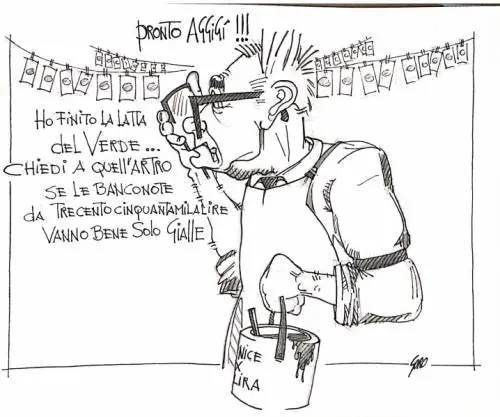 PRONTO AGGIGÍ !!!
HO FINITO LA LATTA
DEL VERDE...
CHIEDI A QUELL'ARTRO
SE LE BANCONOTE
DA TRECENTOCINQUANTAMILALIRE
VANNO BENE SOLO GIALLE
NICE
X
LIRA